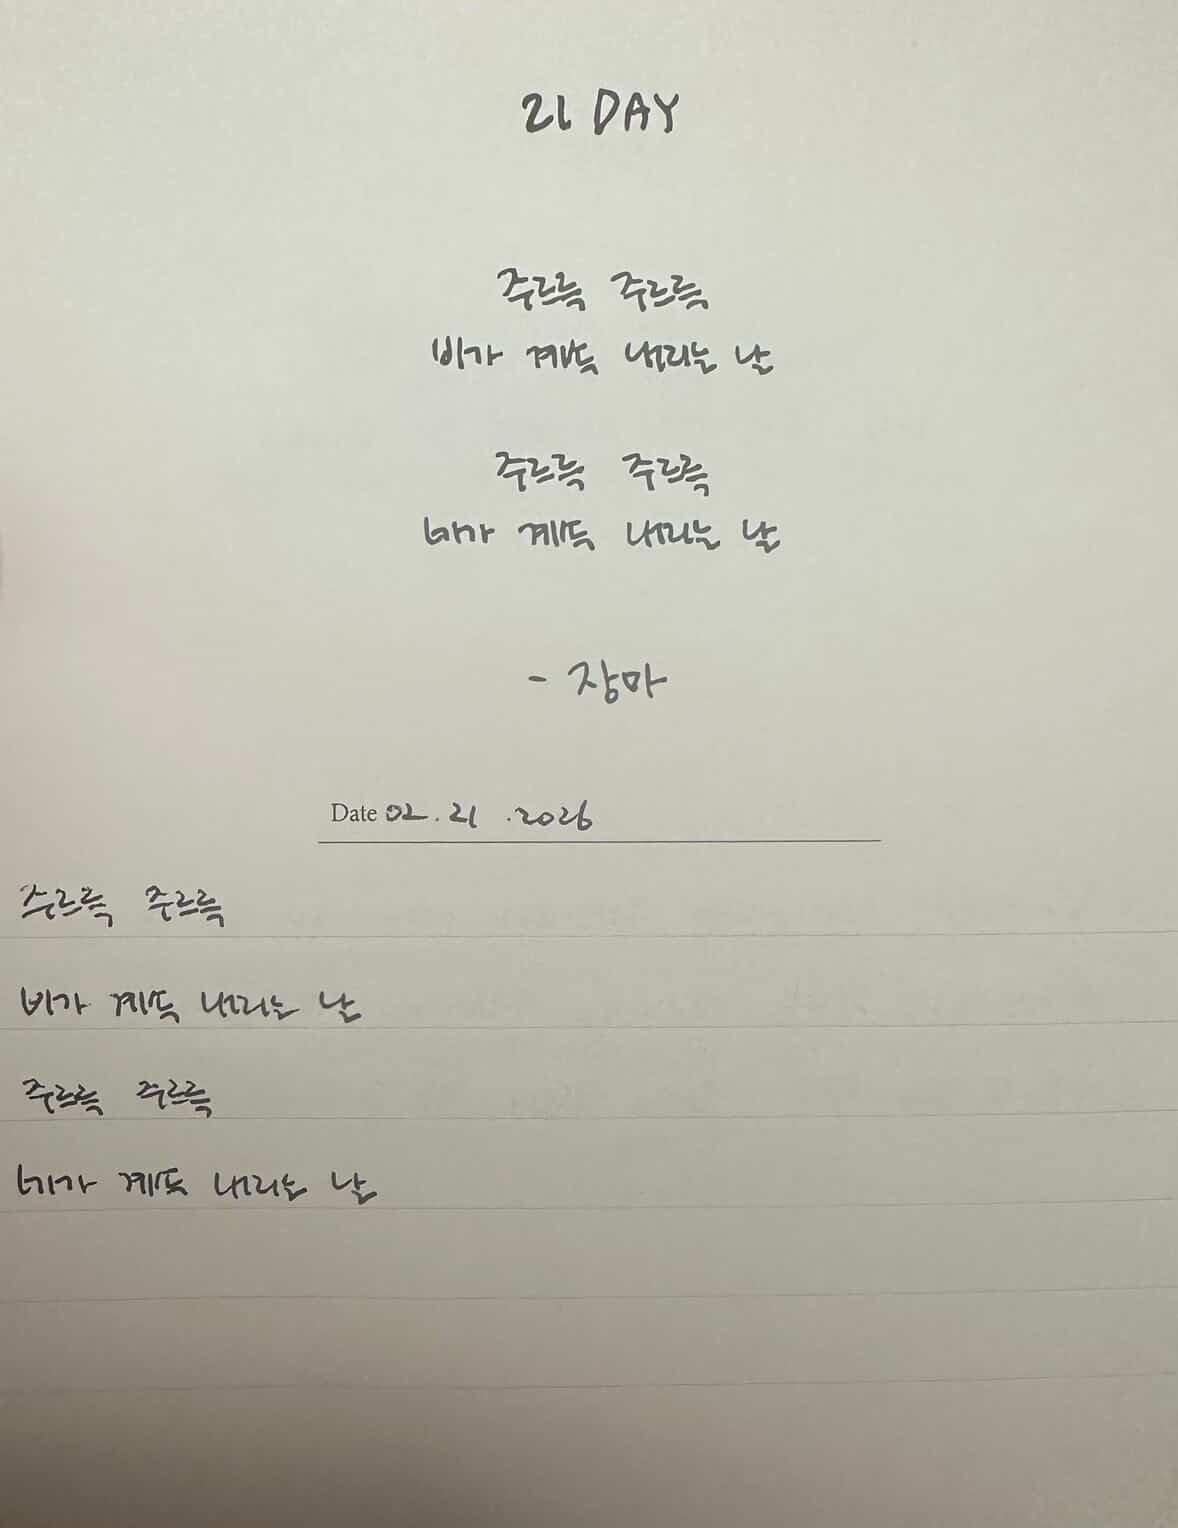 21 DAY
주르륵 주르륵
비가 계속 내리는 날
주르륵 주르륵
네가 계속 내리는 날
- 장마
Date 02.21.2026
주르륵 주르륵
비가 계속 내리는 날
주르륵 주르륵
네가 계속 내리는 날